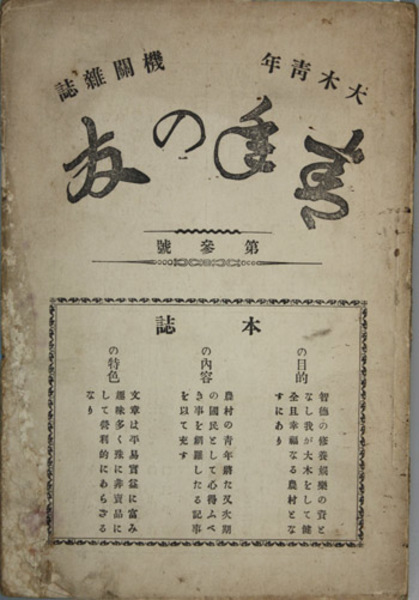 大木青年
機關雜誌
青年の友
第參號
本誌
の目的
智德の修養娛樂の資と
なし我が大木をして健
全且幸福なる農村とな
すにあり
の內容
農村の青年將た又次期
の國民として心得ふべ
き事を網羅したる記事
を以て充す
の特色
文章は平易實益に富み
趣味多く殊に非賣品に
して營利的にあらざる
なり